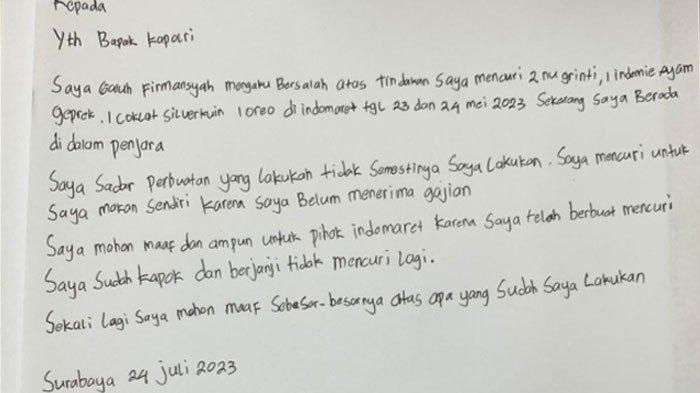 Kepada
Yth Bapak Kapolri
Saya Galuh Firmansyah mengaku Bersalah atas tindakan Saya mencuri 2 nugrinti, 1 indomie Ayam
geprek. 1 Coklat Silverkuin 1 oreo di indomaret tgl 23 dan 24 mei 2023 Sekarang Saya Berada
di dalam penjara
Saya Sadar Perbuatan yang lakukan tidak Semestinya Saya Lakukan. Saya mencuri untuk
Saya makan Sendiri Karena Saya Belum menerima gajian
Saya mohon maaf dan ampun untuk pihak indomaret Karena Saya telah berbuat mencuri
Saya Sudah Kapok dan berjanji tidak mencuri lagi.
Sekali lagi Saya mohon maaf Sebesar-besarnya atas apa yang Sudah Saya Lakukan
Surabaya 24 juli 2023